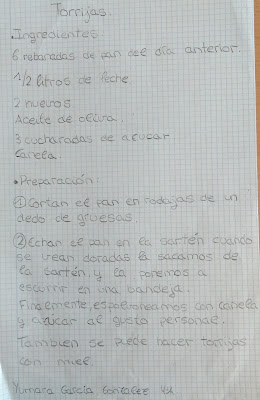 Torrijas.
•Ingredientes
6 rebanadas de pan del día anterior.
1/2 litros de leche
2 huevos
Aceite de oliva.
3 cucharadas de azucar.
Canela.
•Preparación:
①Cortan el pan en rodajas de un
dedo de gruesas.
②Echan el pan en la sartén cuando
se vean doradas la sacamos de
la sartén, y la ponemos a
escurrir en una bandeja.
Finalmente, espolvoreamos con canela
y azucar al gusto personal.
Tambien se puede hacer torrijas
con miel.
García González